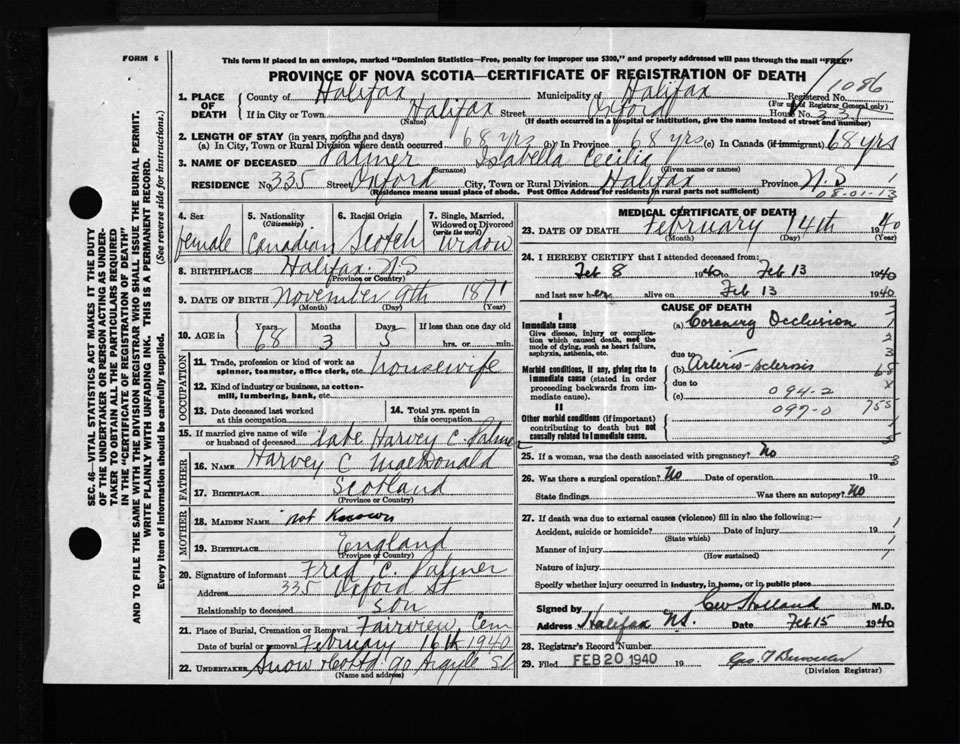 FORM 6
This form if placed in an envelope, marked "Dominion Statistics—Free, penalty for improper use $300," and properly addressed will pass through the mail "FREE"
PROVINCE OF NOVA SCOTIA—CERTIFICATE OF REGISTRATION OF DEATH
1086
1. PLACE OF DEATH County of Halifax Municipality of Halifax Registered No.
(For use of Registrar General only)
If in City or Town Halifax Street Oxford House No. 335
(Name) (If death occurred in a hospital or institution, give the name instead of street and number)
2. LENGTH OF STAY (in years, months and days)
(a) In City, Town or Rural Division where death occurred 68 yrs (b) In Province 68 yrs (c) In Canada (if immigrant) 68 yrs
3. NAME OF DECEASED Palmer Isabella Cecilia
(Surname) (Given name or names)
RESIDENCE No. 335 Street Oxford City, Town or Rural Division Halifax Province N.S
(Residence means usual place of abode. Post Office Address for residents in rural parts not sufficient)
08-01-13
4. Sex female
5. Nationality (Citizenship) Canadian
6. Racial Origin Scotch
7. Single, Married, Widowed or Divorced (write the word) Widow
8. BIRTHPLACE Halifax N.S
(Province or Country)
9. DATE OF BIRTH November 9th 1871
(Month) (Day) (Year)
10. AGE in Years 68 Months 3 Days 5 If less than one day old hrs. or min.
OCCUPATION
11. Trade, profession or kind of work as spinner, teamster, office clerk, etc. housewife
12. Kind of industry or business, as cotton-mill, lumbering, bank, etc.
13. Date deceased last worked at this occupation
14. Total yrs. spent in this occupation
15. If married give name of wife or husband of deceased late Harvey C. Palmer
FATHER
16. NAME Harvey C MacDonald
17. BIRTHPLACE Scotland
(Province or Country)
MOTHER
18. MAIDEN NAME not Known
19. BIRTHPLACE England
(Province or Country)
20. Signature of informant Fred C. Palmer
Address 335 Oxford St
Relationship to deceased son
21. Place of Burial, Cremation or Removal Fairview Cem
Date of burial or removal February 16th 1940
22. UNDERTAKER Snow Co Ltd 90 Argyle St
(Name and address)
MEDICAL CERTIFICATE OF DEATH
23. DATE OF DEATH February 14th 1940
(Month) (Day) (Year)
24. I HEREBY CERTIFY that I attended deceased from:
Feb 8 1940 to Feb 13 1940
and last saw her alive on Feb 13 1940
CAUSE OF DEATH
I
Immediate cause
Give disease, injury or complication which caused death, not the mode of dying, such as heart failure, asphyxia, asthenia, etc.
(a) Coronary Occlusion
due to
Morbid conditions, if any, giving rise to immediate cause (stated in order proceeding backwards from immediate cause).
(b) Arterio-sclerosis
due to
(c)
094-2
097-0
755
II
Other morbid conditions (if important) contributing to death but not causally related to immediate cause.
25. If a woman, was the death associated with pregnancy? No
26. Was there a surgical operation? No Date of operation 19
State findings Was there an autopsy? No
27. If death was due to external causes (violence) fill in also the following:—
Accident, suicide or homicide? Date of injury 19
(State which)
Manner of injury
(How sustained)
Nature of injury
Specify whether injury occurred in industry, in home, or in public place
Signed by Holland M.D.
Address Halifax N.S. Date Feb 15 1940
28. Registrar's Record Number
29. Filed FEB 20 1940 19
(Division Registrar)
SEC. 46—VITAL STATISTICS ACT MAKES IT THE DUTY
OF THE UNDERTAKER OR PERSON ACTING AS UNDER-
TAKER TO OBTAIN ALL THE PARTICULARS REQUIRED
IN THE "CERTIFICATE OF REGISTRATION OF DEATH"
AND TO FILE THE SAME WITH THE DIVISION REGISTRAR WHO SHALL ISSUE THE BURIAL PERMIT.
WRITE PLAINLY WITH UNFADING INK. THIS IS A PERMANENT RECORD.
Every item of information should be carefully supplied. (See reverse side for instructions.)